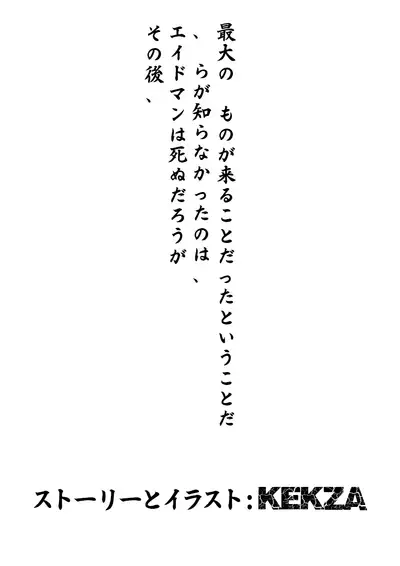 最大の ものが来ることだったということだ
、 らが知らなかったのは、
エイドマンは死ぬだろうが
その後、
ストーリーとイラスト:KEKZA